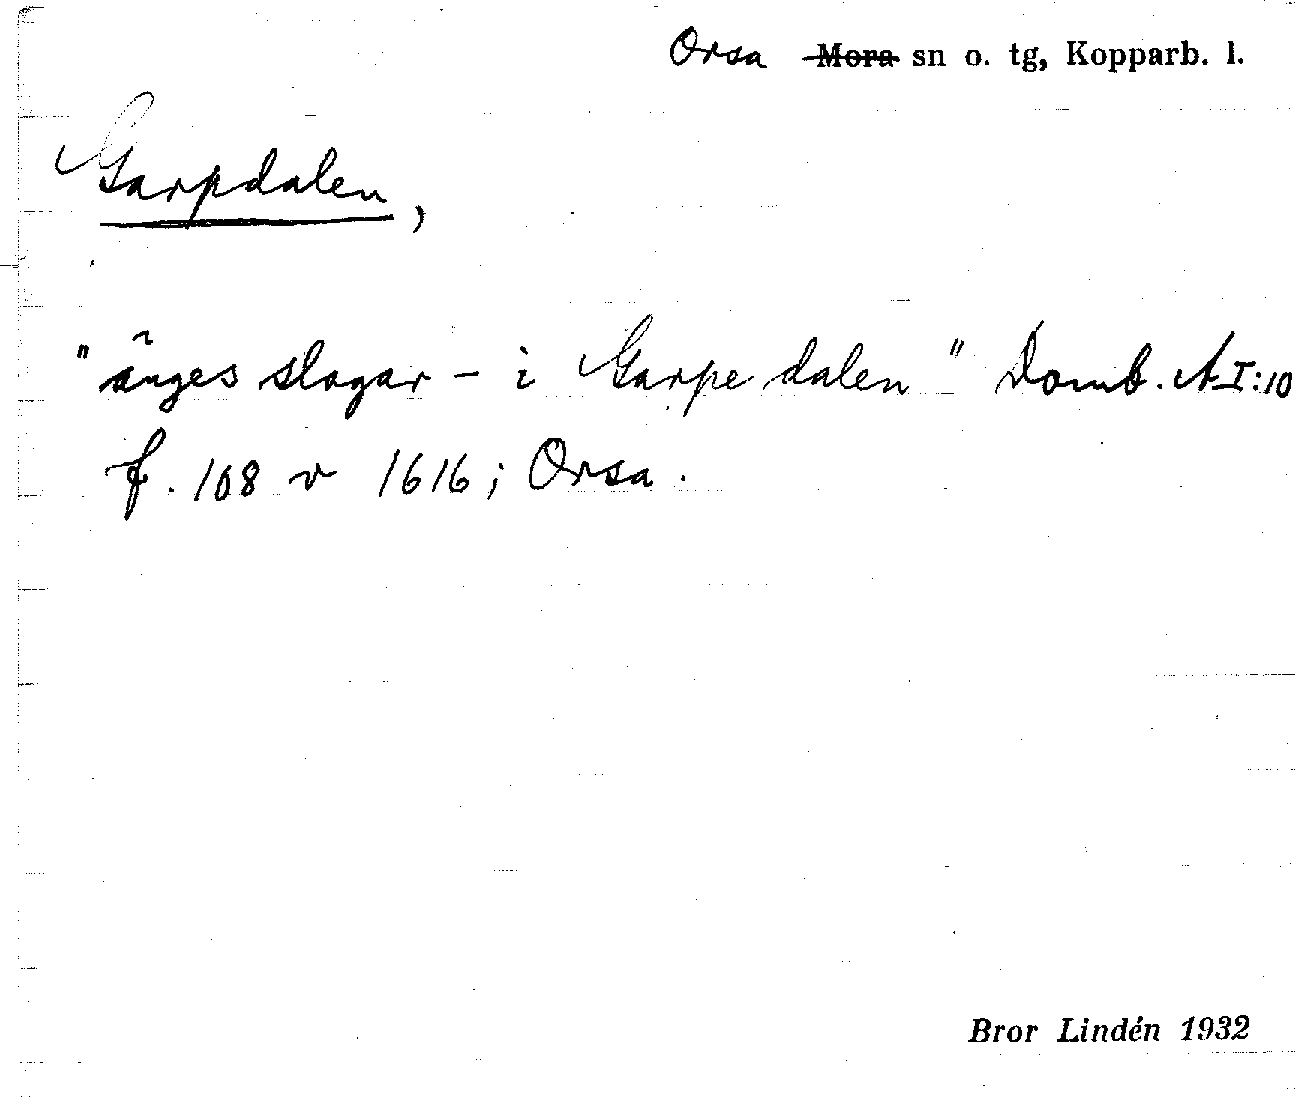 Orsa Mora sn o. tg, Kopparb. l.
Garpdalen,
"änges slagar - i Garpe dalen" Domb. A I:10
f. 108 v 1616; Orsa.
Bror Lindén 1932